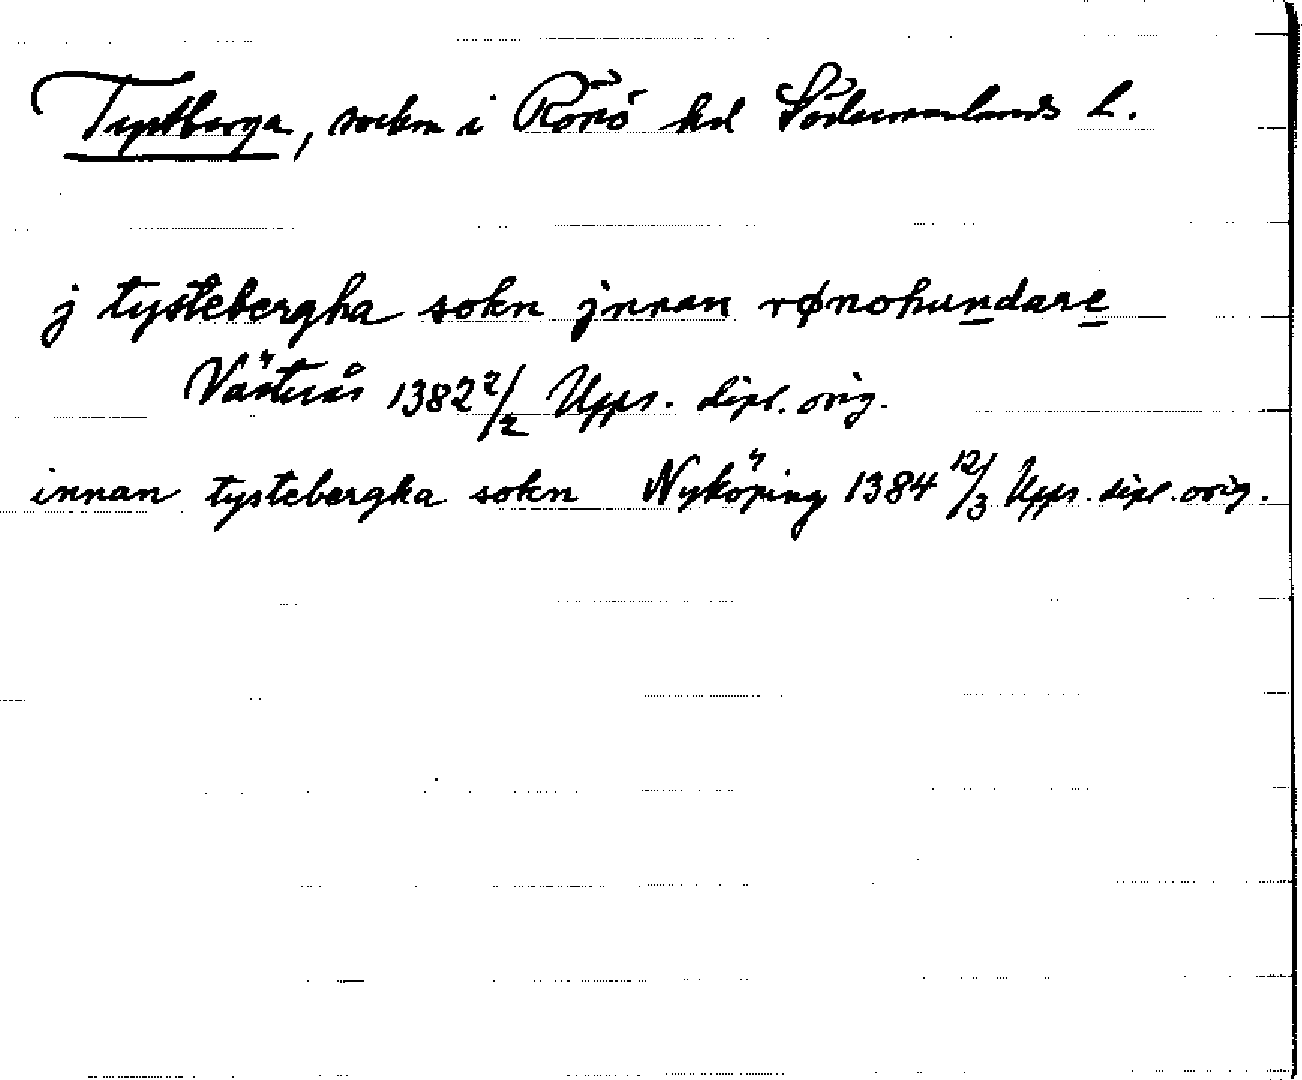 Tystberga, socken i Rönö hd Södermanlands L.
j tystebergha sokn jnnan rønohundare
Västerås 1382 2/2 Upps. dipl. orig.
innan tystebergha sokn Nyköping 1384 12/3 Upps. dipl. orig.